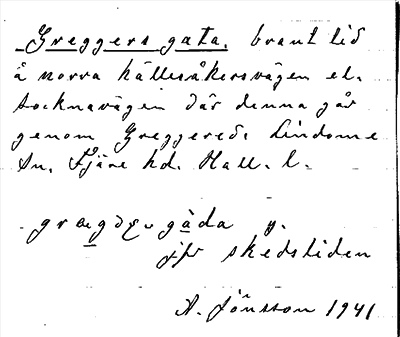 Greggers gata. brant lid
å norra källesåkersvägen el.
socknavägen där denna går
genom Greggered. Lindome
sn. Fjäre hd. Hall. l.
gata y.
jfr skedsliden
A. Jönsson 1941